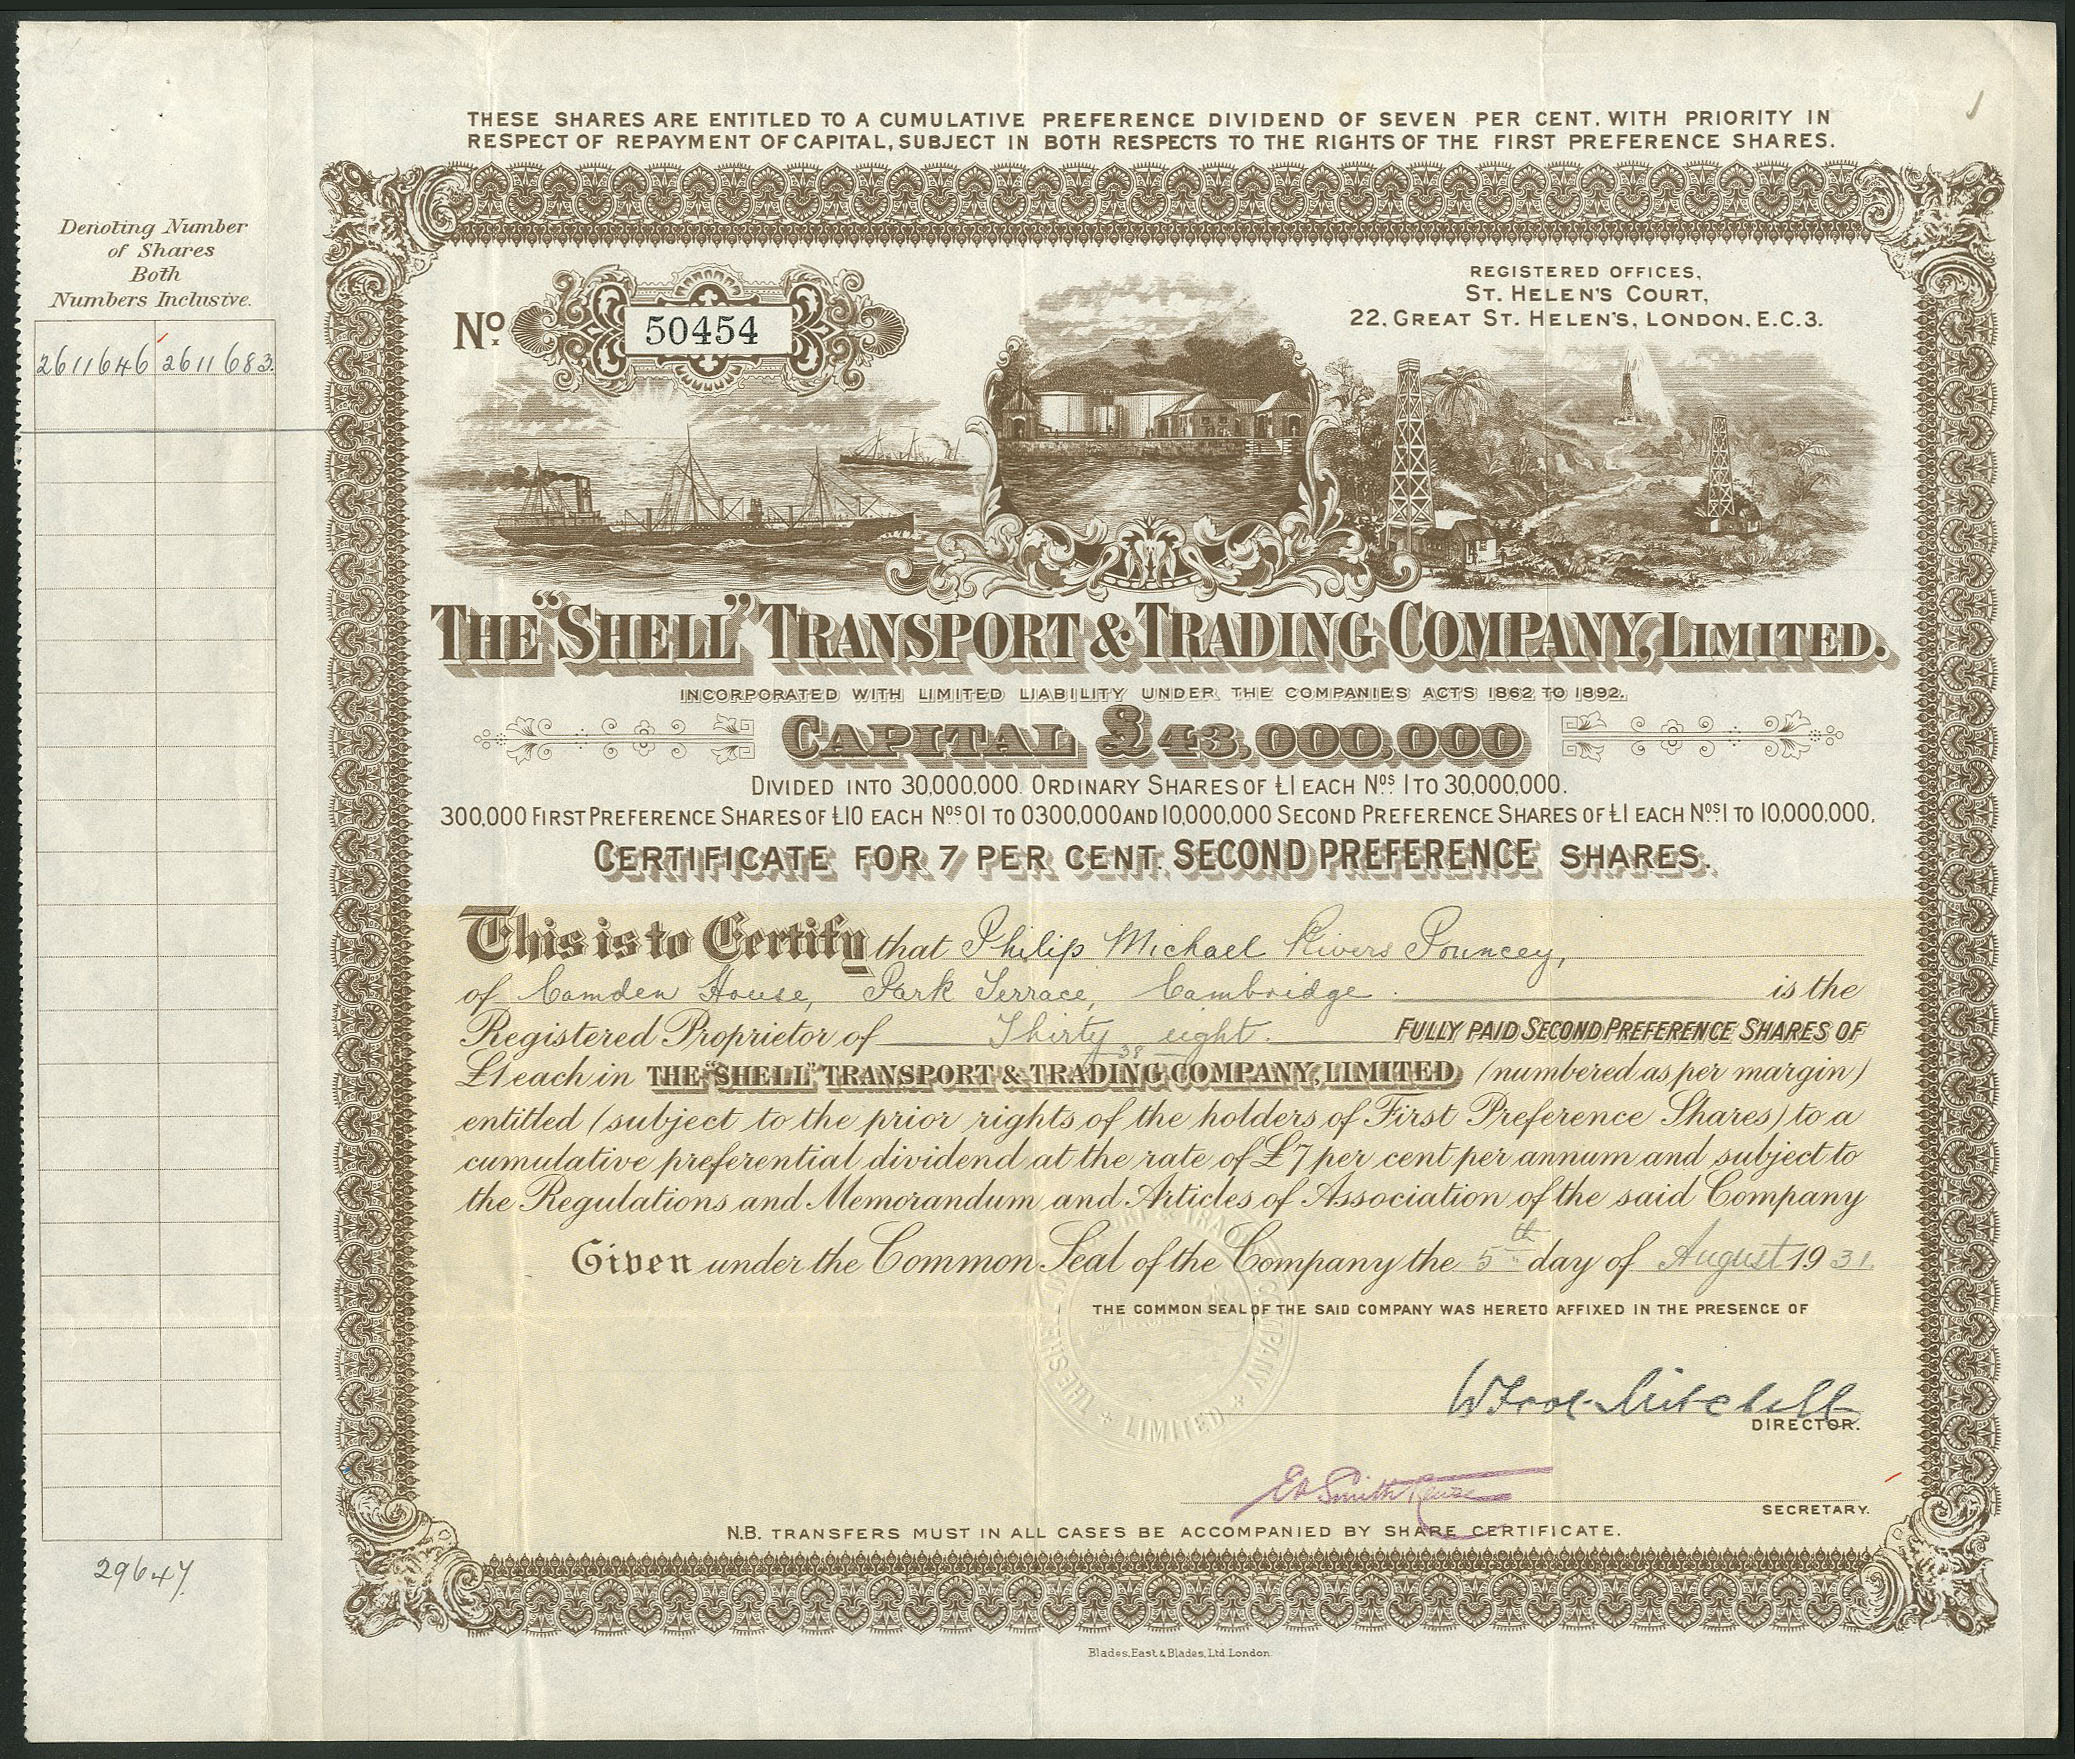 THESE SHARES ARE ENTITLED TO A CUMULATIVE PREFERENCE DIVIDEND OF SEVEN PER CENT. WITH PRIORITY IN
RESPECT OF REPAYMENT OF CAPITAL, SUBJECT IN BOTH RESPECTS TO THE RIGHTS OF THE FIRST PREFERENCE SHARES.
Denoting Number
of Shares
Both
Numbers Inclusive.
2611646 2611683.
29647.
No. 50454
REGISTERED OFFICES,
ST. HELEN'S COURT,
22, GREAT ST. HELEN'S, LONDON, E.C.3.
THE "SHELL" TRANSPORT & TRADING COMPANY, LIMITED.
INCORPORATED WITH LIMITED LIABILITY UNDER THE COMPANIES ACTS 1862 TO 1892.
CAPITAL £43,000,000
DIVIDED INTO 30,000,000 ORDINARY SHARES OF £1 EACH Nos. 1 TO 30,000,000.
300,000 FIRST PREFERENCE SHARES OF £10 EACH Nos. 01 TO 0300,000 AND 10,000,000 SECOND PREFERENCE SHARES OF £1 EACH Nos. 1 TO 10,000,000.
CERTIFICATE FOR 7 PER CENT. SECOND PREFERENCE SHARES.
This is to Certify that Philip Michael Rivers Pouncey,
of Camden House, Park Terrace, Cambridge. is the
Registered Proprietor of Thirty eight. FULLY PAID SECOND PREFERENCE SHARES OF
38
£1 each in THE "SHELL" TRANSPORT & TRADING COMPANY, LIMITED (numbered as per margin)
entitled (subject to the prior rights of the holders of First Preference Shares) to a
cumulative preferential dividend at the rate of £7 per cent per annum and subject to
the Regulations and Memorandum and Articles of Association of the said Company
Given under the Common Seal of the Company the 5th day of August 1931.
THE COMMON SEAL OF THE SAID COMPANY WAS HERETO AFFIXED IN THE PRESENCE OF
THE SHELL TRANSPORT & TRADING COMPANY LIMITED
DIRECTOR.
SECRETARY.
N.B. TRANSFERS MUST IN ALL CASES BE ACCOMPANIED BY SHARE CERTIFICATE.
Blades, East & Blades, Ltd. London.